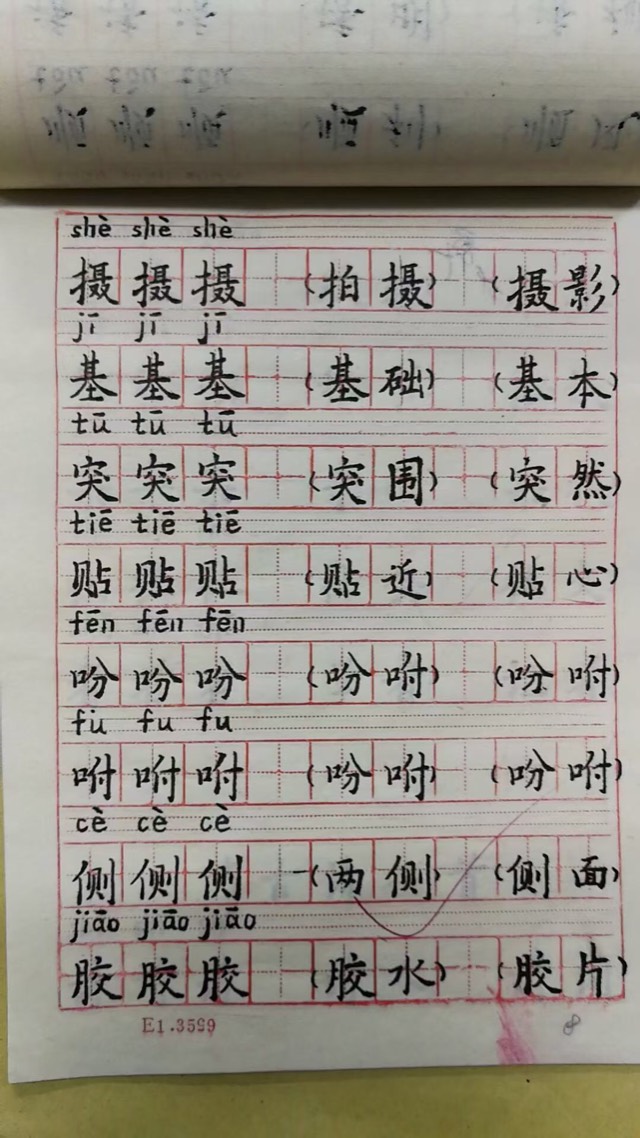 shè shè shè
摄 摄 摄 (拍 摄) (摄 影)
jī jī jī
基 基 基 (基 础) (基 本)
tū tū tū
突 突 突 (突 围) (突 然)
tiē tiē tiē
贴 贴 贴 (贴 近) (贴 心)
fēn fēn fēn
吩 吩 吩 (吩 咐) (吩 咐)
fù fu fu
咐 咐 咐 (吩 咐) (吩 咐)
cè cè cè
侧 侧 侧 (两 侧) (侧 面)
jiāo jiāo jiāo
胶 胶 胶 (胶 水) (胶 片)
E1.3599 8